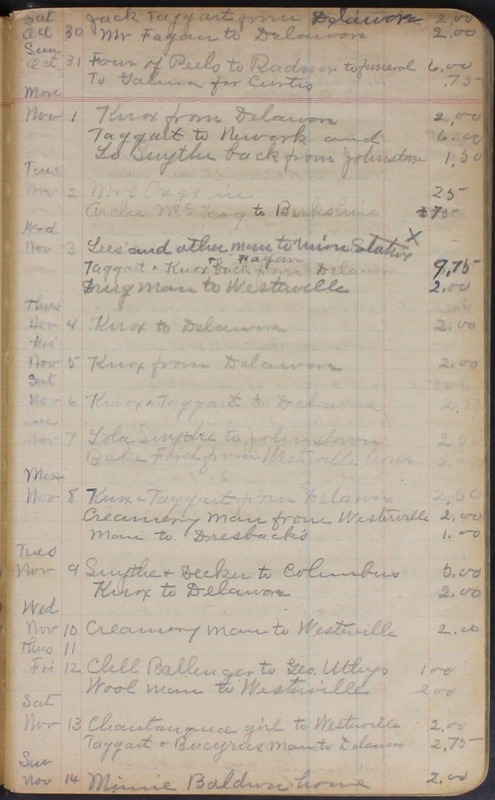 Sat Jack Taggart from Delawore 2.00
Oct 30 Mr Fagan to Delawore 2.00
Sun
Oct 31 Four of Peels to Radnor to funeral 6.00
To Galena for Curtis .75
Mon
Nov 1 Knox from Delawore 2.00
Taggart to Newark and 6.00
Lo Smythe back from Johnston 1.50
Tues
Nov 2 Mrs in 25
Archie McKay to Berkshire 75
Wed
Nov 3 Lees and other man to Union Station X
Taggart & Knox & Fagan back from Delawore 9.75
Drug Man to Westerville 2.00
Thurs
Nov 4 Knox to Delawore 2.00
Fri
Nov 5 Knox from Delawore 2.00
Sat
Nov 6 Knox & Taggart to Delawore 2.50
Nov 7 Lola Smythe to Johnstown 2.50
Bake Ford from Westerville home
Mon
Nov 8 Knox & Taggart from Delawore 2.50
Creamery Man from Westerville 2.00
Man to Dresbach's 1.00
Tues
Nov 9 Smythe & Decker to Columbus 5.00
Knox to Delawore 2.00
Wed
Nov 10 Creamery Man to Westerville 2.00
Thurs 11
Fri 12 Clell Ballenger to Geo. Utleys 1.00
Wool man to Westerville 2.00
Sat
Nov 13 Chautauqua girl to Westerville 2.00
Taggart & Bucyrus Man to Delawore 2.75
Sun
Nov 14 Minnie Baldwin home 2.00